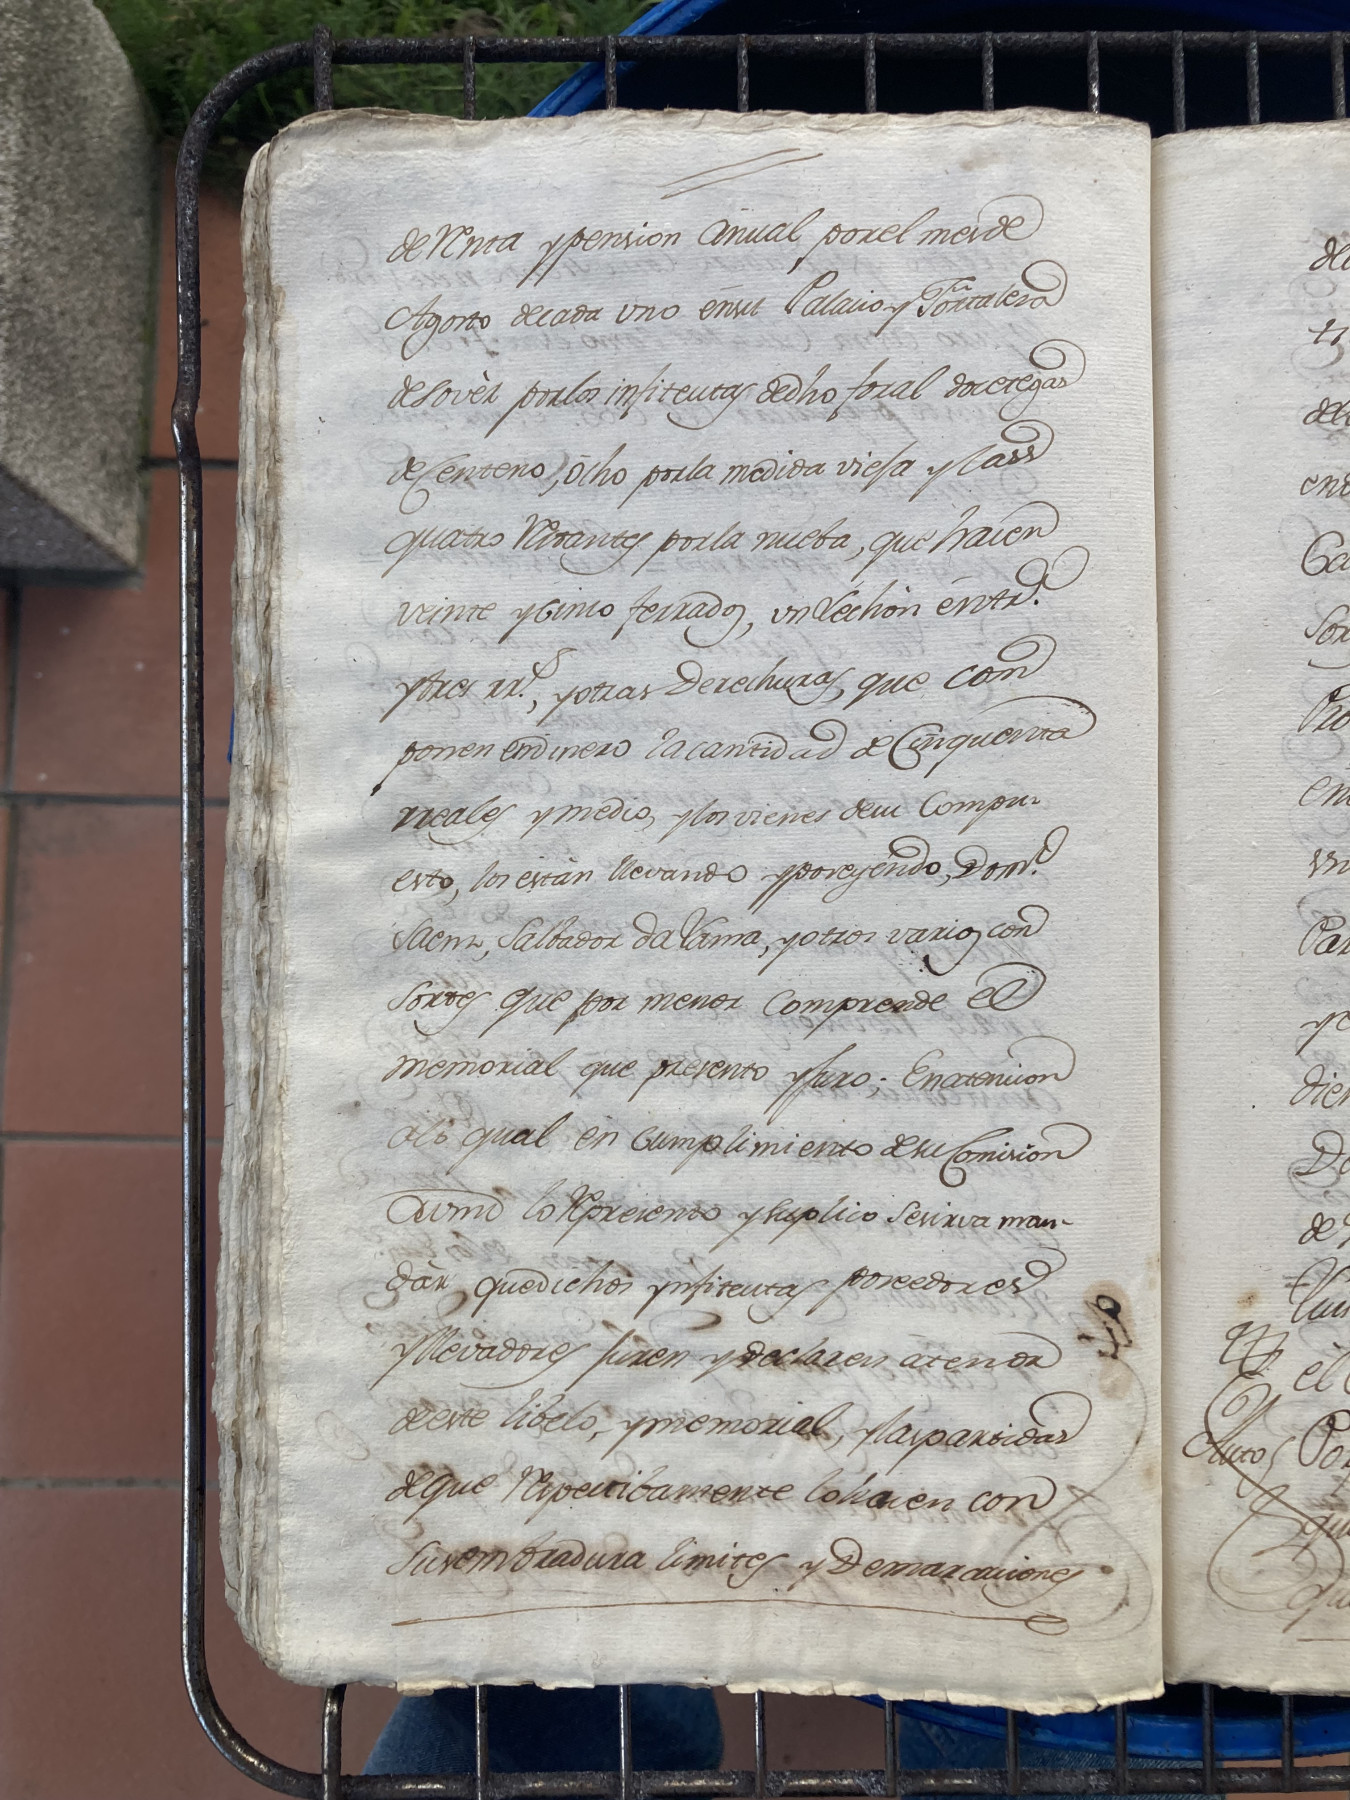 de Renta y pension añual porel mes de
Agosto decada uno ensu Palacio y Fortaleza
desovèr porlos infiteutas dedho foral doce tegas
de Centeno, ocho porla medida viesa y lass
quatro Restantes porla nueba, que hacen
veinte y cinco ferrados, un Lechon entrd.
y tres rr.s, y otras Derechuras, que con
ponen endinero la cantidad de Cinquenta
rreales y medio, y los vienes desu Compu-
esto, los están llevando y poseyendo, Dom.o
Saenz, Salbador da Vama, y otros varios con
sortes que por menor comprende el
memorial que presento y juro; En atencion
alo qual en cumplimiento desu Comision
Avmd lo Represento y suplico se sirva man-
dàr que dichos ynfiteutas poseedores
y llevadores juren y declaren atenor
de este libelo, y memorial, y las partidas
deque Respectibamente lo hacen con
su sembradura limites y Demarcaciones
Auto